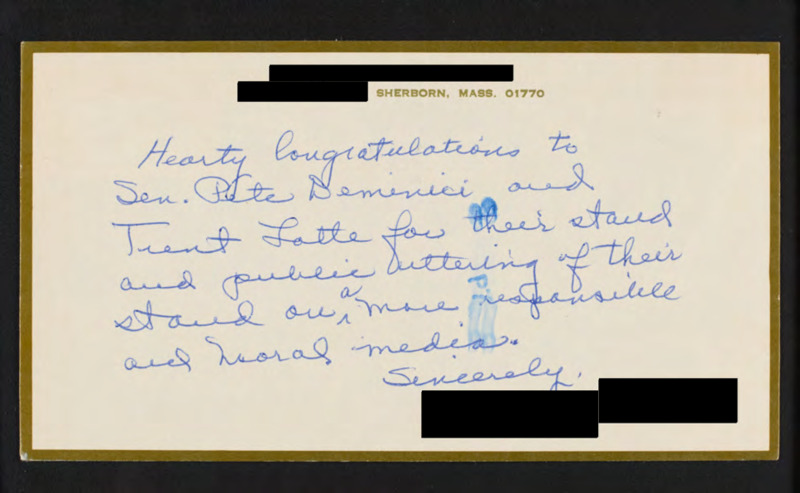 SHERBORN, MASS. 01770
Hearty Congratulations to
Sen. Pete Demenici and
Trent Lotte for their stand
and public uttering of their
stand on a more responsible
and moral media.
Sincerely,